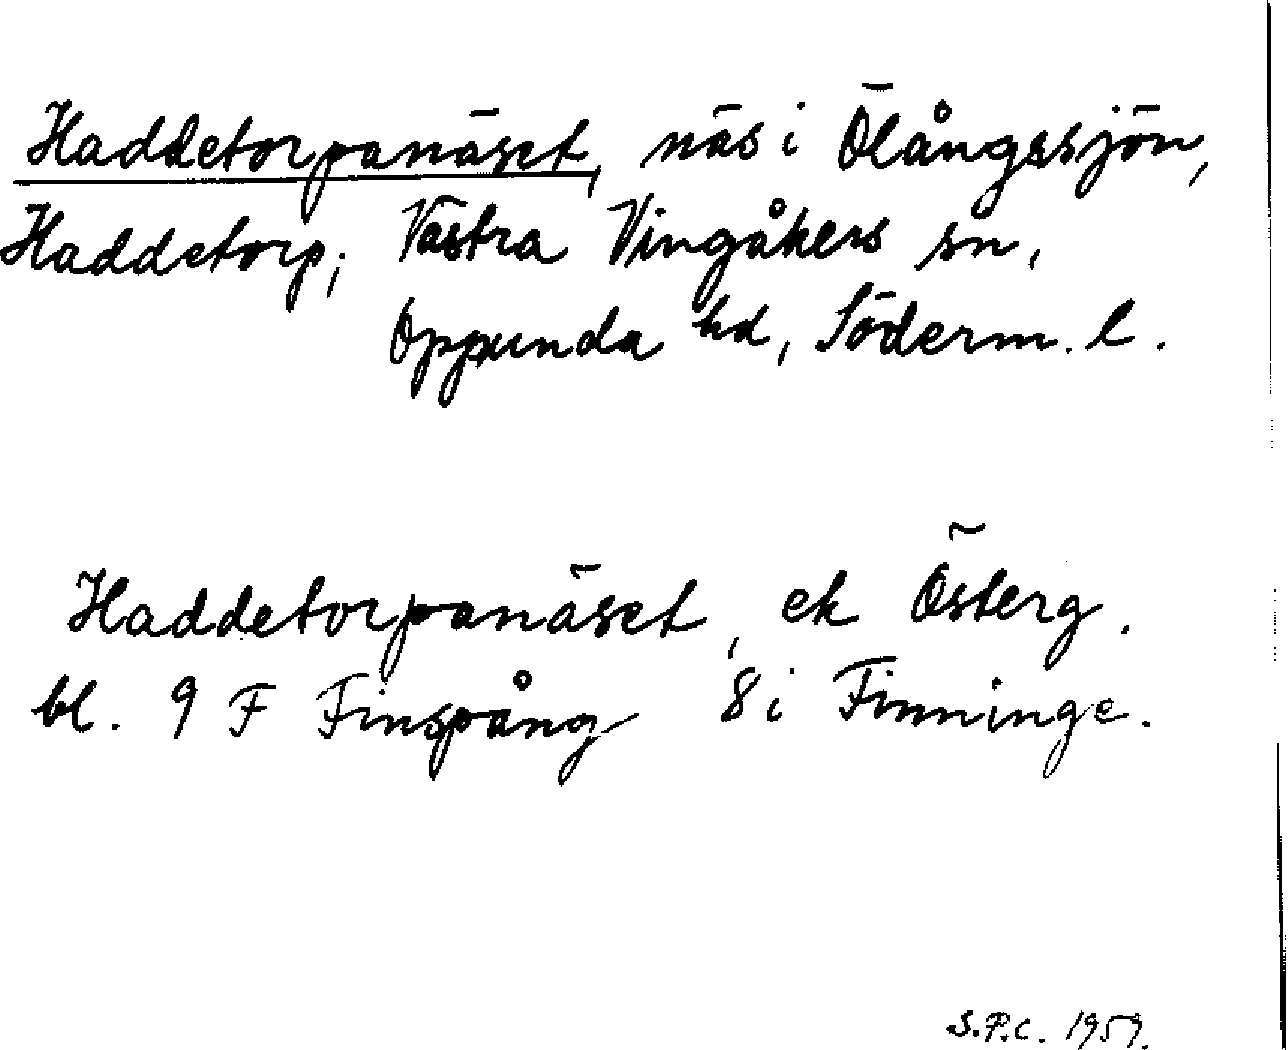 Haddetorpanäset, näs i Ölångssjön,
Haddetorp; Västra Vingåkers sn,
Oppunda hd, Söderm. l.
Haddetorpanäset, ek Österg.
bl. 9 F Finspång 8 i Finninge.
S.P.C. 1959.